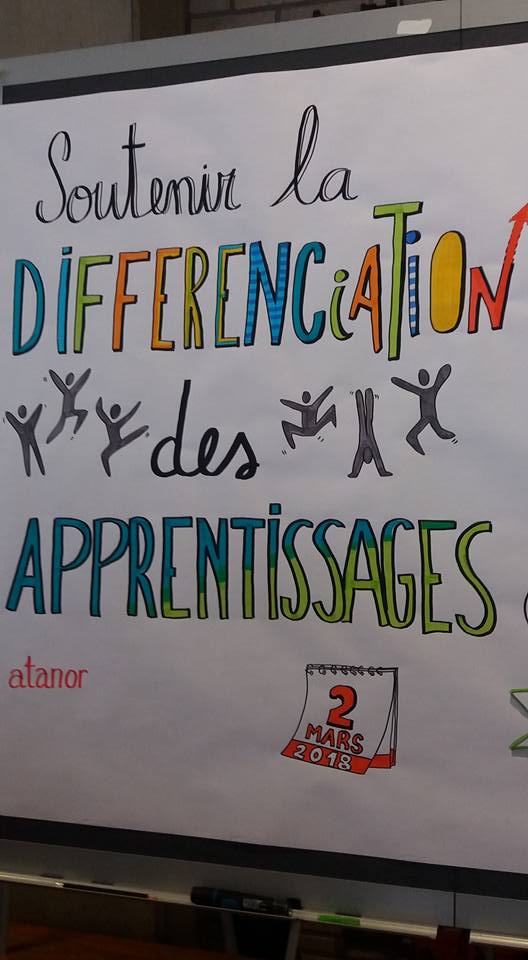 Soutenir la
DiFFERENCiATiON
des
APPRENTiSSAGES
atanor
2
MARS
2018